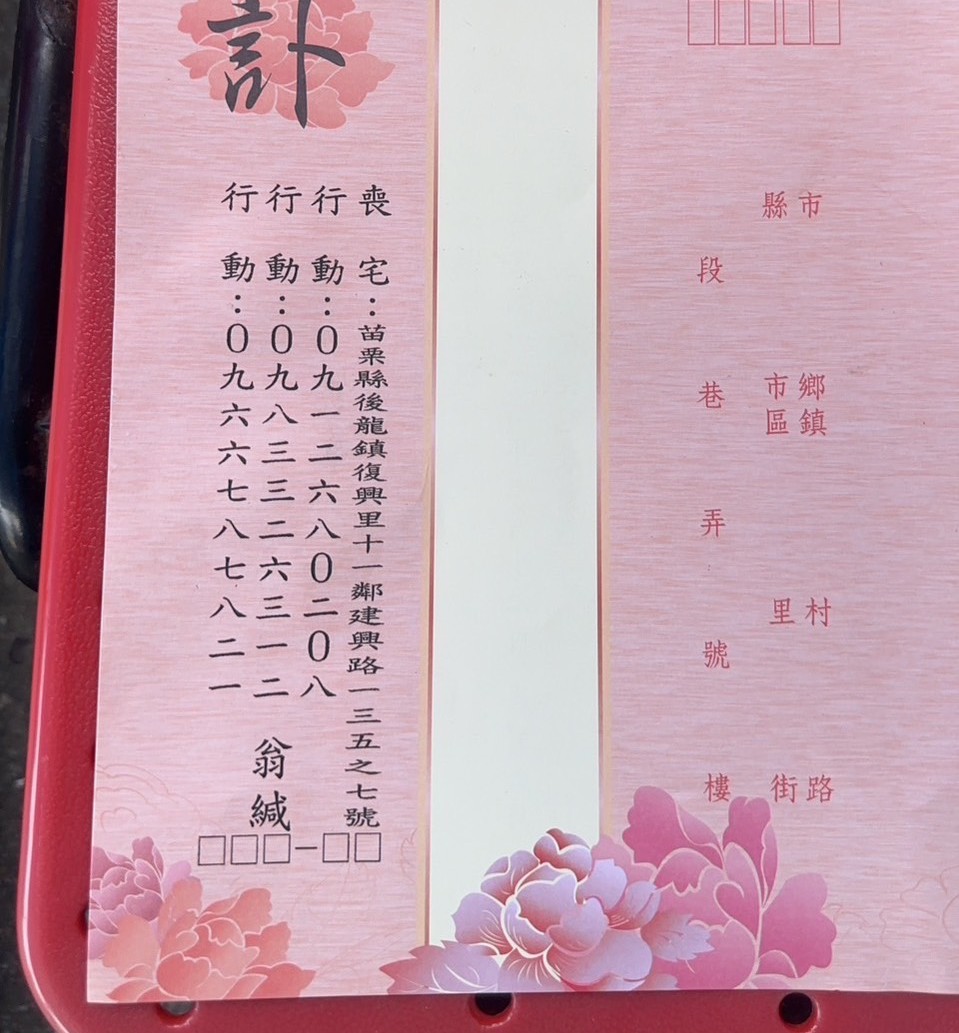 縣市
鄉鎮
市區
里村
街路
段巷弄號樓
訃
喪宅：苗栗縣後龍鎮復興里十一鄰建興路一三五之七號
行動：0九一二六八0二0八
行動：0九八三三二六三一二
行動：0九六六七八七八二一
翁緘